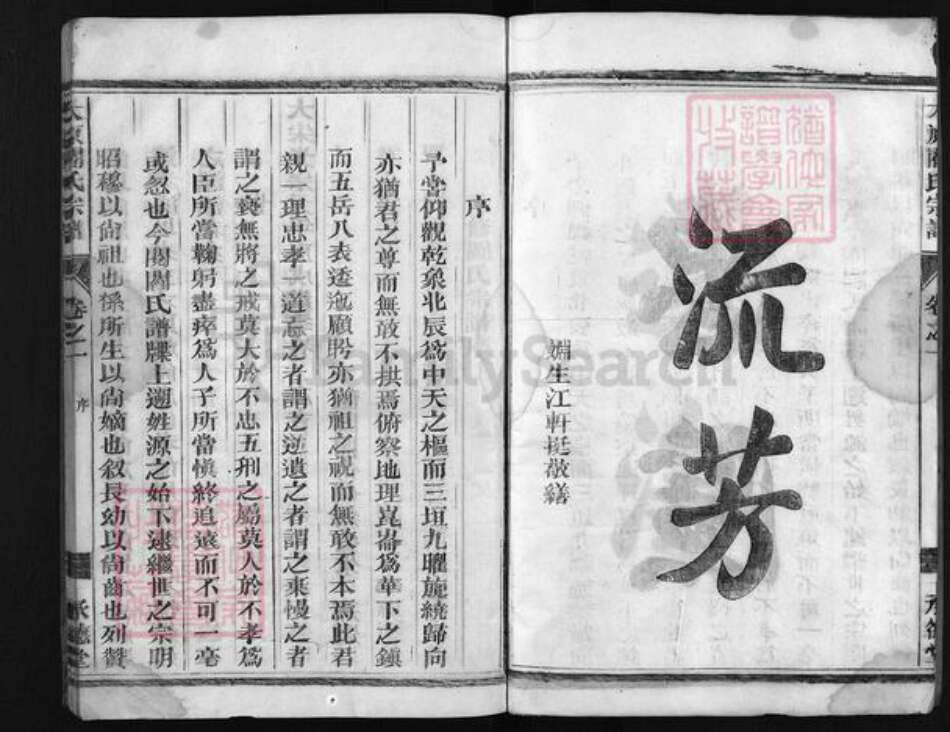 流芳
姻生江軒挺敬繕
序
予嘗仰觀乾象北辰為中天之樞而三垣九曜旋繞歸向
亦猶君之尊而無敢不拱焉俯察地理崑崙為華下之鎮
而五岳八表逶迤顧盻亦猶祖之視而無敢不本焉此君
親一理忠孝一道忘之者謂之逆遺之者謂之棄慢之者
謂之褻無將之戒莫大於不忠五刑之屬莫大於不孝為
人臣所當鞠躬盡瘁為人子所當慎終追遠而不可一毫
或忽也今閱閻氏譜牒上遡姓源之始下逮繼世之宗明
昭穆以尚祖也係所生以尚嫡也敘長幼以尚齒也列贊
氏宗譜
卷之一
序
承德堂
FamilySearch
猶他家譜學會收藏